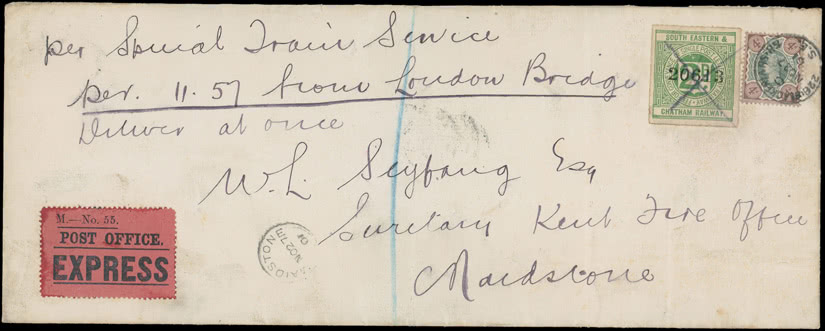 per Special Train Service
per. 11.57 from London Bridge
Deliver at once
W. L. Seyfang Esq
Secretary Kent Fire Office
Maidstone
SOUTH EASTERN &
2D
20613
CHATHAM RAILWAY.
4
4
M.—No. 55.
POST OFFICE.
EXPRESS
NO 27
01